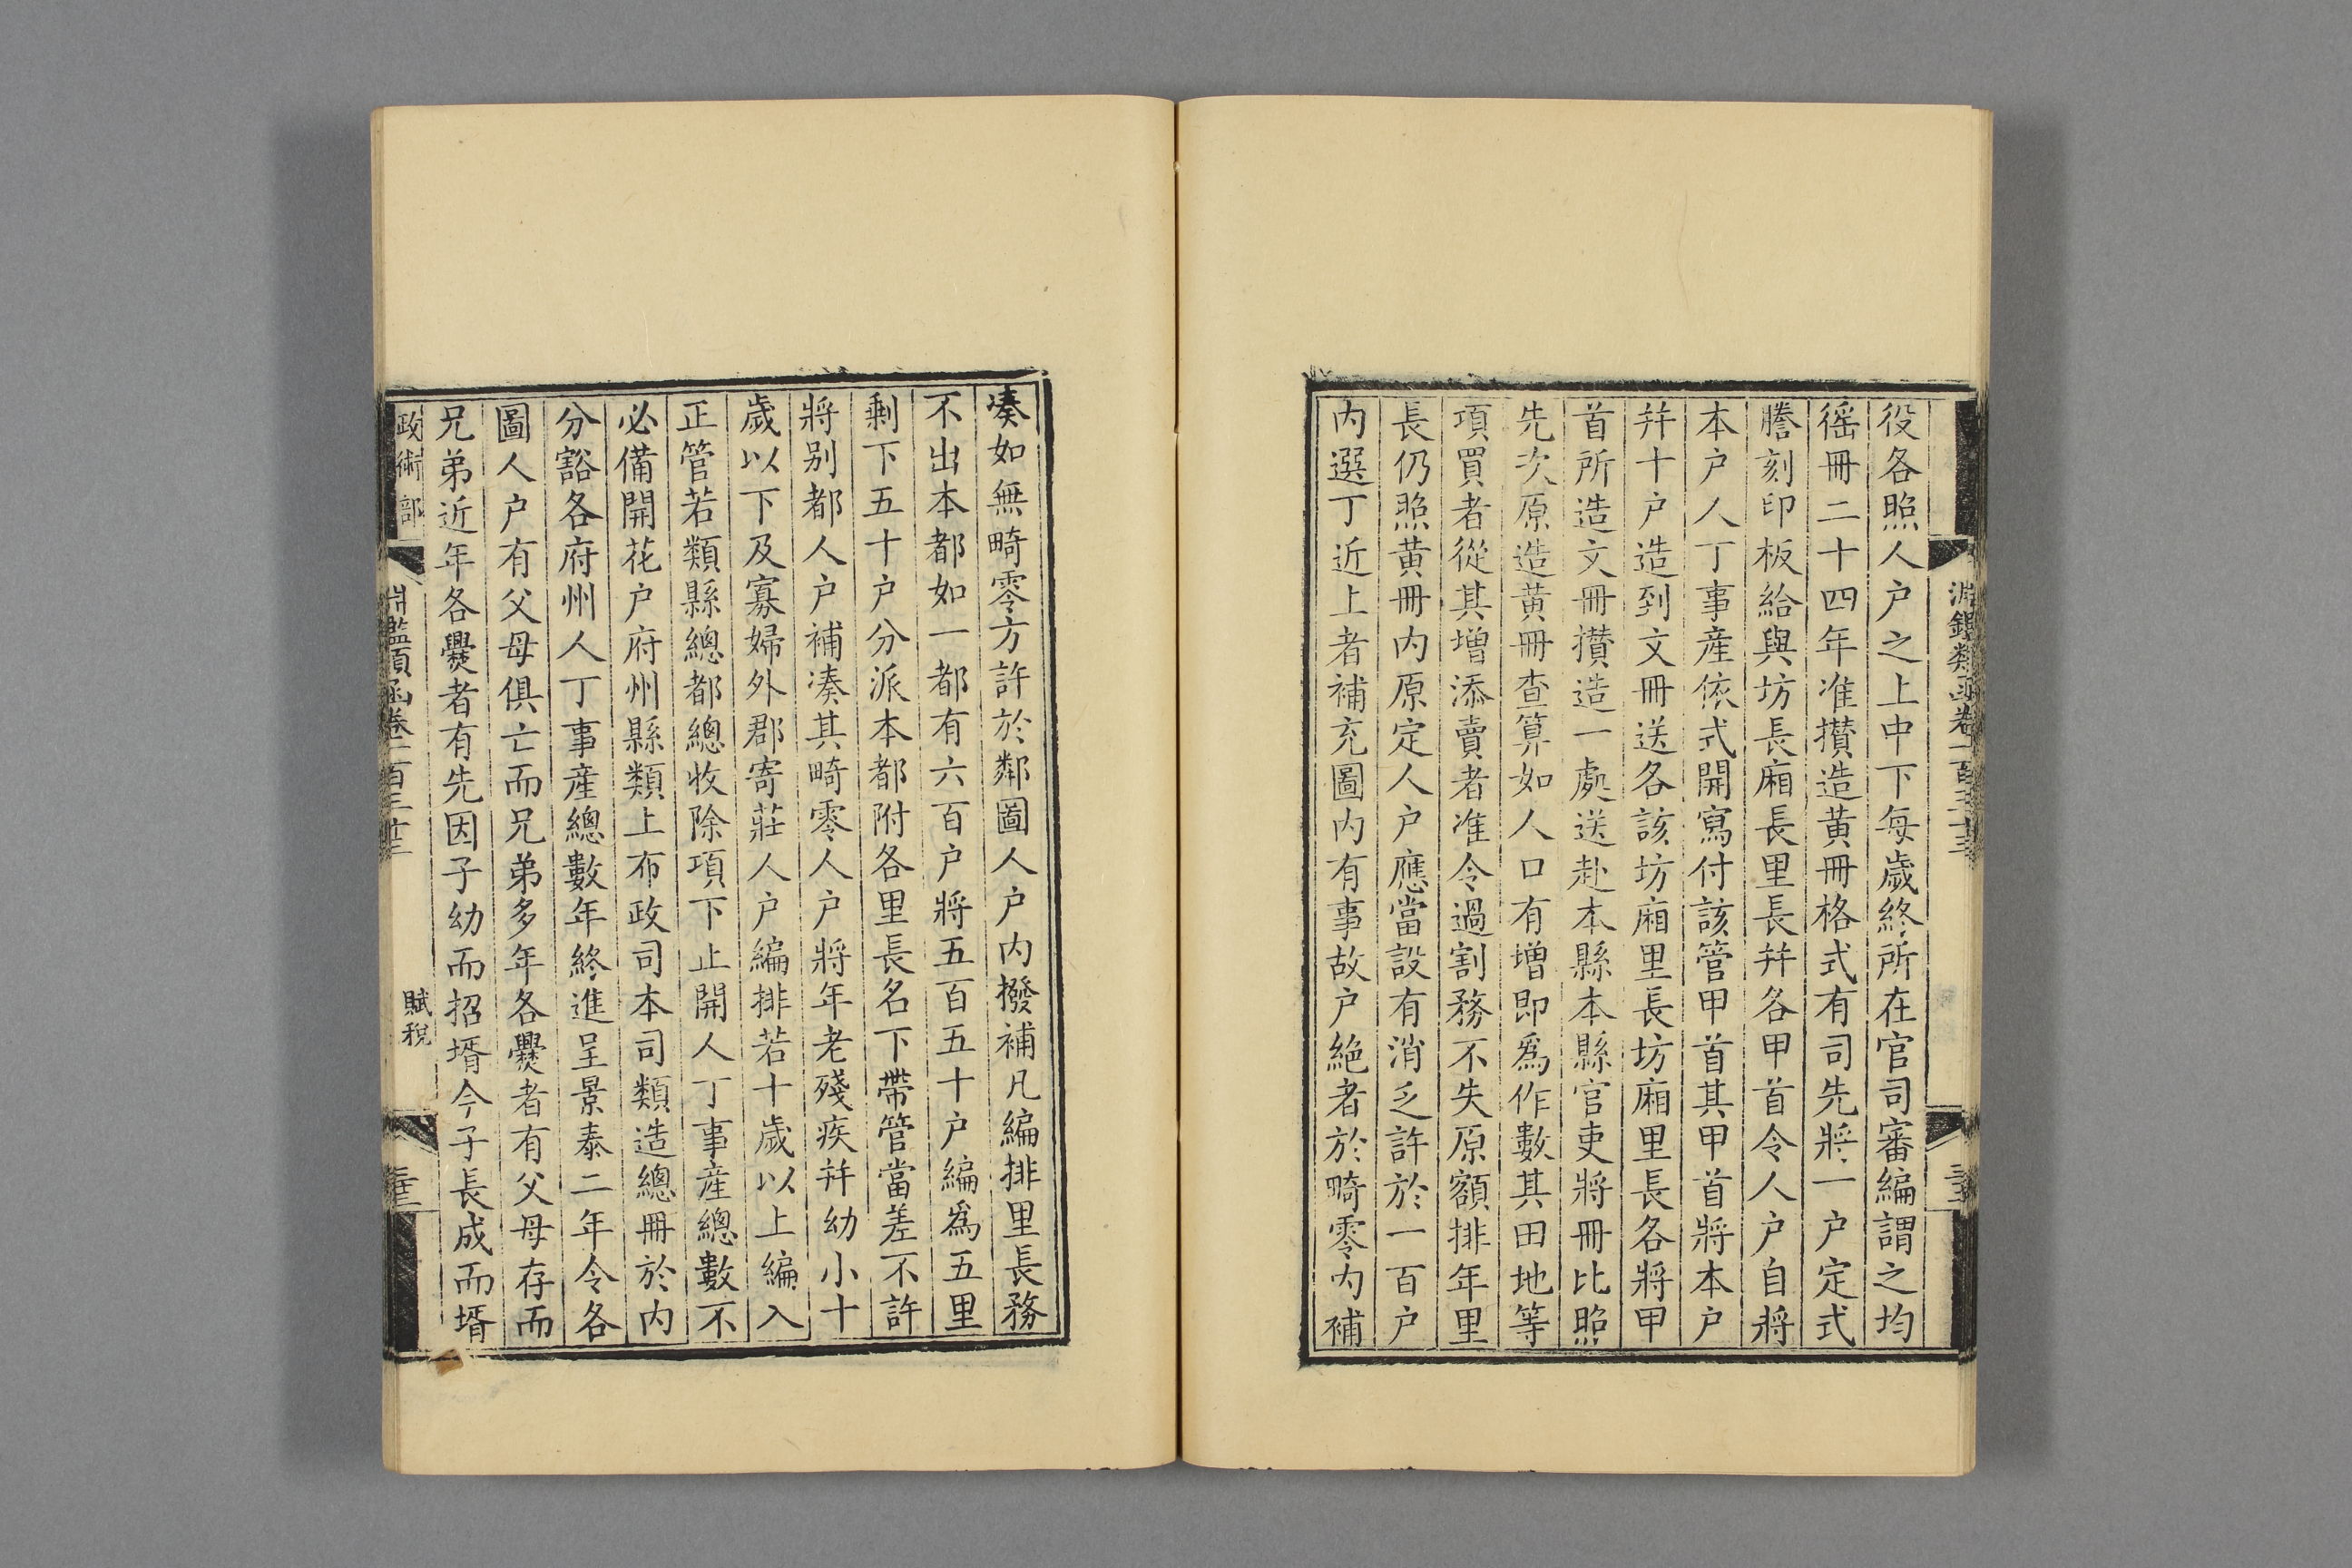 役各照人户之上中下每歲終所在官司審編謂之均
徭冊二十四年准攅造黄冊格式有司先將一户定式
謄刻印板給與坊長廂長里長并各甲首令人户自將
本户人丁事產依式開寫付該管甲首其甲首將本户
并十户造到文冊送各該坊廂里長坊廂里長各將甲
首所造文冊攅造一處送赴本縣本縣官吏將冊比照
先次原造黄冊查算如人口有增即爲作數其田地等
項買者從其增添賣者准令過割務不失原額排年里
長仍照黄冊内原定人户應當設有消乏許於一百户
内選丁近上者補充圖内有事故户絶者於畸零内補
湊如無畸零方許於鄰圖人户内撥補凡編排里長務
不出本都如一都有六百户將五百五十户編爲五里
剩下五十户分派本都附各里長名下帶管當差不許
將别都人户補湊其畸零人户將年老殘疾并幼小十
歲以下及寡婦外郡寄莊人户編排若十歲以上編入
正管若類縣總都總收除項下止開人丁事產總數不
必備開花户府州縣類上布政司本司類造總冊於内
分豁各府州人丁事產總數年終進呈景泰二年令各
圖人户有父母俱亡而兄弟多年各爨者有父母存而
兄弟近年各爨者有先因子幼而招壻今子長成而壻
政術部
賦稅